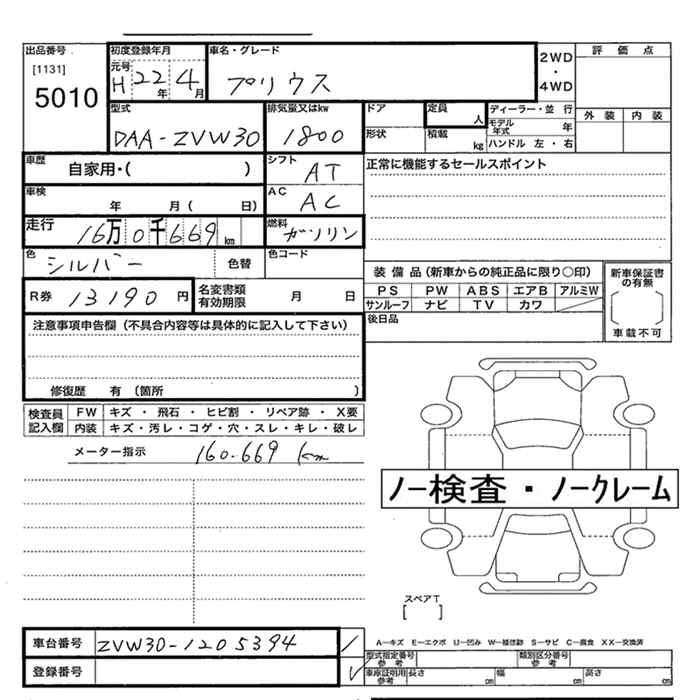 出品番号
[1131]
5010
初度登録年月
元号
H 22年 4月
車名・グレード
プリウス
2WD
・
4WD
評価点
外装 内装
型式
DAA-ZVW30
排気量又はkw
1800
ドア
形状
定員
人
積載
kg
ディーラー・並行
モデル年式 年
ハンドル 左・右
車歴
自家用・( )
シフト
AT
正常に機能するセールスポイント
車検
年 月( 日)
AC
AC
走行
16万0千669km
燃料
ガソリン
色
シルバー
色替
色コード
R券 13190円
名変書類有効期限 月 日
装備品(新車からの純正品に限り○印)
PS PW ABS エアB アルミW
サンルーフ ナビ TV カワ
新車保証書の有無
[ ]
車載不可
後日品
注意事項申告欄(不具合内容等は具体的に記入して下さい)
修復歴 有(箇所 )
検査員記入欄
FW キズ・飛石・ヒビ割・リペア跡・X要
内装 キズ・汚レ・コゲ・穴・スレ・キレ・破レ
メーター指示 160.669 km
ノー検査・ノークレーム
スペアT
[ ]
車台番号 ZVW30-1205394
登録番号
A―キズ E―エクボ U―凹み W―補修跡 S―サビ C―腐食 XX―交換済
型式指定番号参考
類別区分番号参考
車庫証明用参考 長さ cm 幅 cm 高さ cm